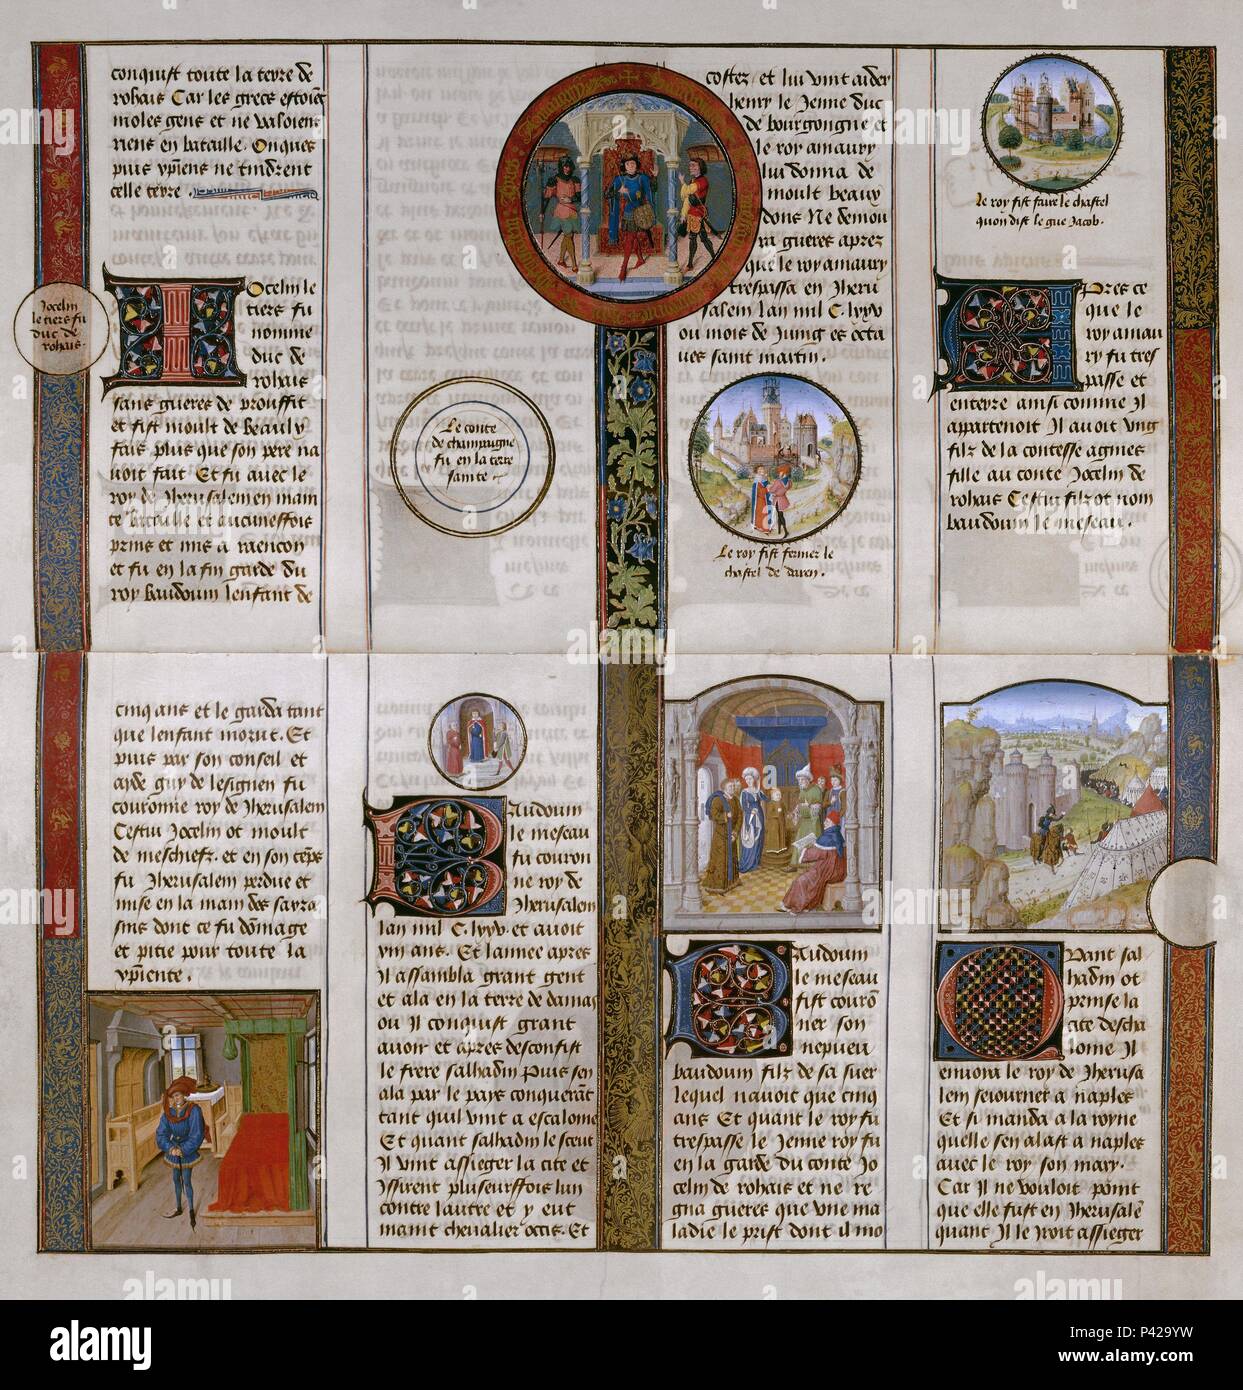 conquist toute la terre de
rohais Car les grecs estoient
moles gens et ne valoient
riens en bataille. Onques
puis xpiens ne tindrent
celle terre.
Jocelin
le tiers fu
duc de
rohais.
Jocelin le
tiers fu
nomme
duc de
rohais
sans gueres de prouffit
et fist moult de beauly
fais plus que son pere na
uoit fait Et fu avec le
roy de Jherusalem en main
te bataille et aucuneffois
prins et mis a raencon
et fu en la fin garde du
roy baudouin lenfant de
cinq ans et le garda tant
que lenfant morut. Et
puis par son conseil et
ayde guy de lesignen fu
couronne roy de Jherusalem
Cestui Jocelin ot moult
de meschiefz. et en son teps
fu Jherusalem perdue et
mise en la main des sarra
sins dont ce fu dommage
et pitie pour toute la
xpiente.
Le conte
de champaigne
fu en la terre
sainte
Baudouin
le meseau
fu couron
ne roy de
Jherusalem
lan mil C. lxxv. et avoit
xiii ans. Et lannee apres
Il assambla grant gent
et ala en la terre de damas
ou Il conquist grant
avoir et apres desconfist
le frere salhadin Puis sen
ala par le pays conquerant
tant quil vint a escalone
Et quant salhadin le sceut
Il vint assieger la cite et
Issirent pluseurffois lun
contre lautre et y eut
maint chevalier occis. Et
costez et lui vint aider
henry le Jenne duc
de bourgongne et
le roy amaury
lui donna de
moult beaux
dons Ne demou
ra gueres aprez
que le roy amaury
trespassa en Jheru
salem lan mil C. lxxv
ou mois de Juing es octa
ves saint martin.
Le roy fist fermer le
chastel de daron.
Baudouin
le meseau
fist couron
ner son
nepveu
baudouin filz de sa suer
lequel navoit que cinq
ans Et quant le roy fu
trespasse le Jenne roy fu
en la garde du conte Jo
celin de rohais et ne re
gna gueres que une ma
ladie le prist dont il mo
Le roy fist faire le chastel
quon dist le gue Jacob.
Apres ce
que le
roy amau
ry fu tres
passe et
enterre ainsi comme Il
apartenoit Il avoit ung
filz de la contesse agnes
fille au conte Jocelin de
rohais Cestui filz ot nom
baudouin le meseau.
Quant sal
hadin ot
prinse la
cite desca
lone Il
envoia le roy de Jherusa
lem seiourner a naples
Et si manda a la royne
quelle sen alast a naples
avec le roy son mary.
Car Il ne vouloit point
que elle fust en Jherusalem
quant Il le Iroit assieger
alamy
www.alamy.com
Image ID: P429YW